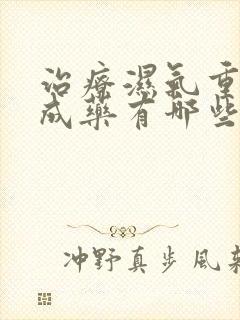 治疗濕氣重
成藥有哪些
冲野真步風架